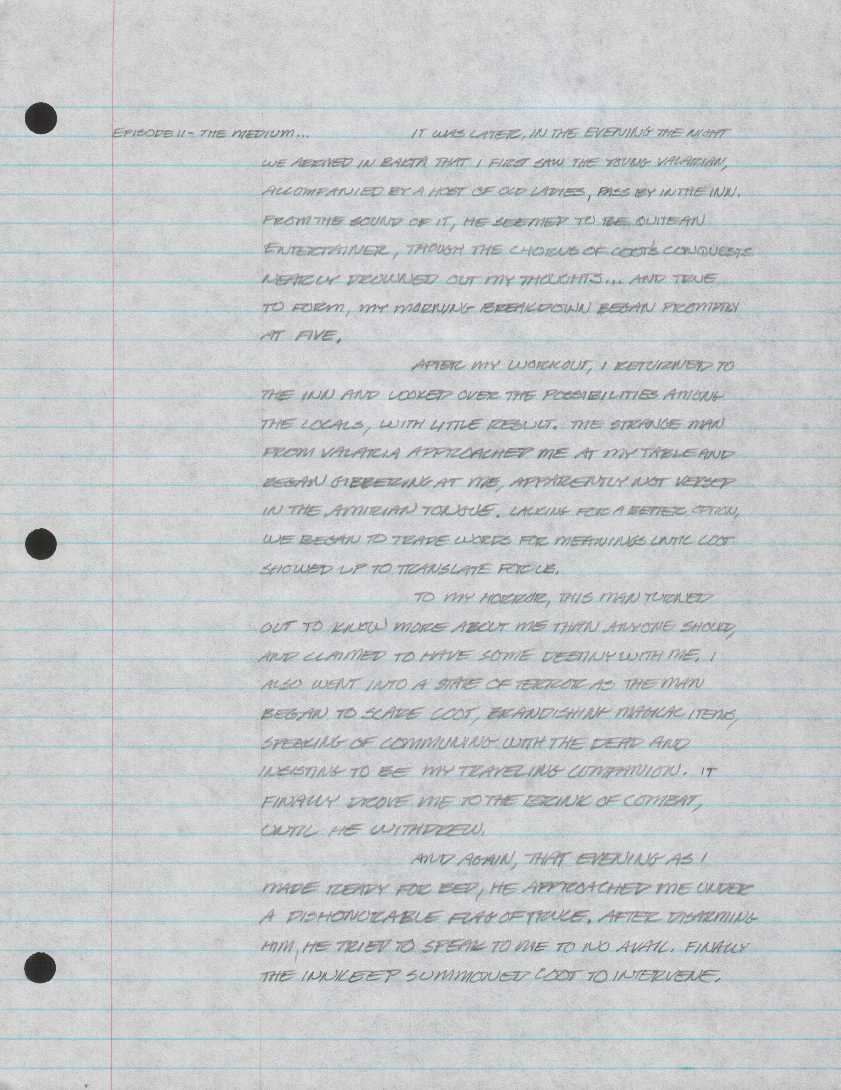 EPISODE II - THE MEDIUM... IT WAS LATER, IN THE EVENING THE NIGHT
WE ARRIVED IN BAKTA THAT I FIRST SAW THE YOUNG VALARIAN,
ACCOMPANIED BY A HOST OF OLD LADIES, PASS BY IN THE INN.
FROM THE SOUND OF IT, HE SEEMED TO BE QUITE AN
ENTERTAINER, THOUGH THE CHORUS OF COOT'S CONQUESTS
NEARLY DROWNED OUT MY THOUGHTS... AND TRUE
TO FORM, MY MORNING BREAKDOWN BEGAN PROMPTLY
AT FIVE.
AFTER MY WORKOUT, I RETURNED TO
THE INN AND LOOKED OVER THE POSSIBILITIES AMONG
THE LOCALS, WITH LITTLE RESULT. THE STRANGE MAN
FROM VALARIA APPROACHED ME AT MY TABLE AND
BEGAN GIBBERING AT ME, APPARENTLY NOT VERSED
IN THE AMIRIAN TONGUE. LACKING FOR A BETTER OPTION,
WE BEGAN TO TRADE WORDS FOR MEANINGS UNTIL COOT
SHOWED UP TO TRANSLATE FOR US.
TO MY HORROR, THIS MAN TURNED
OUT TO KNOW MORE ABOUT ME THAN ANYONE SHOULD,
AND CLAIMED TO HAVE SOME DESTINY WITH ME. I
ALSO WENT INTO A STATE OF TERROR AS THE MAN
BEGAN TO SCARE COOT, BRANDISHING MAGICAL ITEMS,
SPEAKING OF COMMUNING WITH THE DEAD AND
INSISTING TO BE MY TRAVELING COMPANION. IT
FINALLY DROVE ME TO THE BRINK OF COMBAT,
UNTIL HE WITHDREW.
AND AGAIN, THAT EVENING AS I
MADE READY FOR BED, HE APPROACHED ME UNDER
A DISHONORABLE FLAG OF TRUCE. AFTER DISARMING
HIM, HE TRIED TO SPEAK TO ME TO NO AVAIL. FINALLY
THE INNKEEP SUMMONED COOT TO INTERVENE.